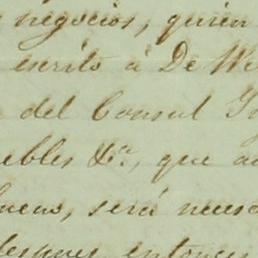 negocios, quien
escrito á De W
del Consul
ebles &a, que a
buenos, será neces
despues entonces